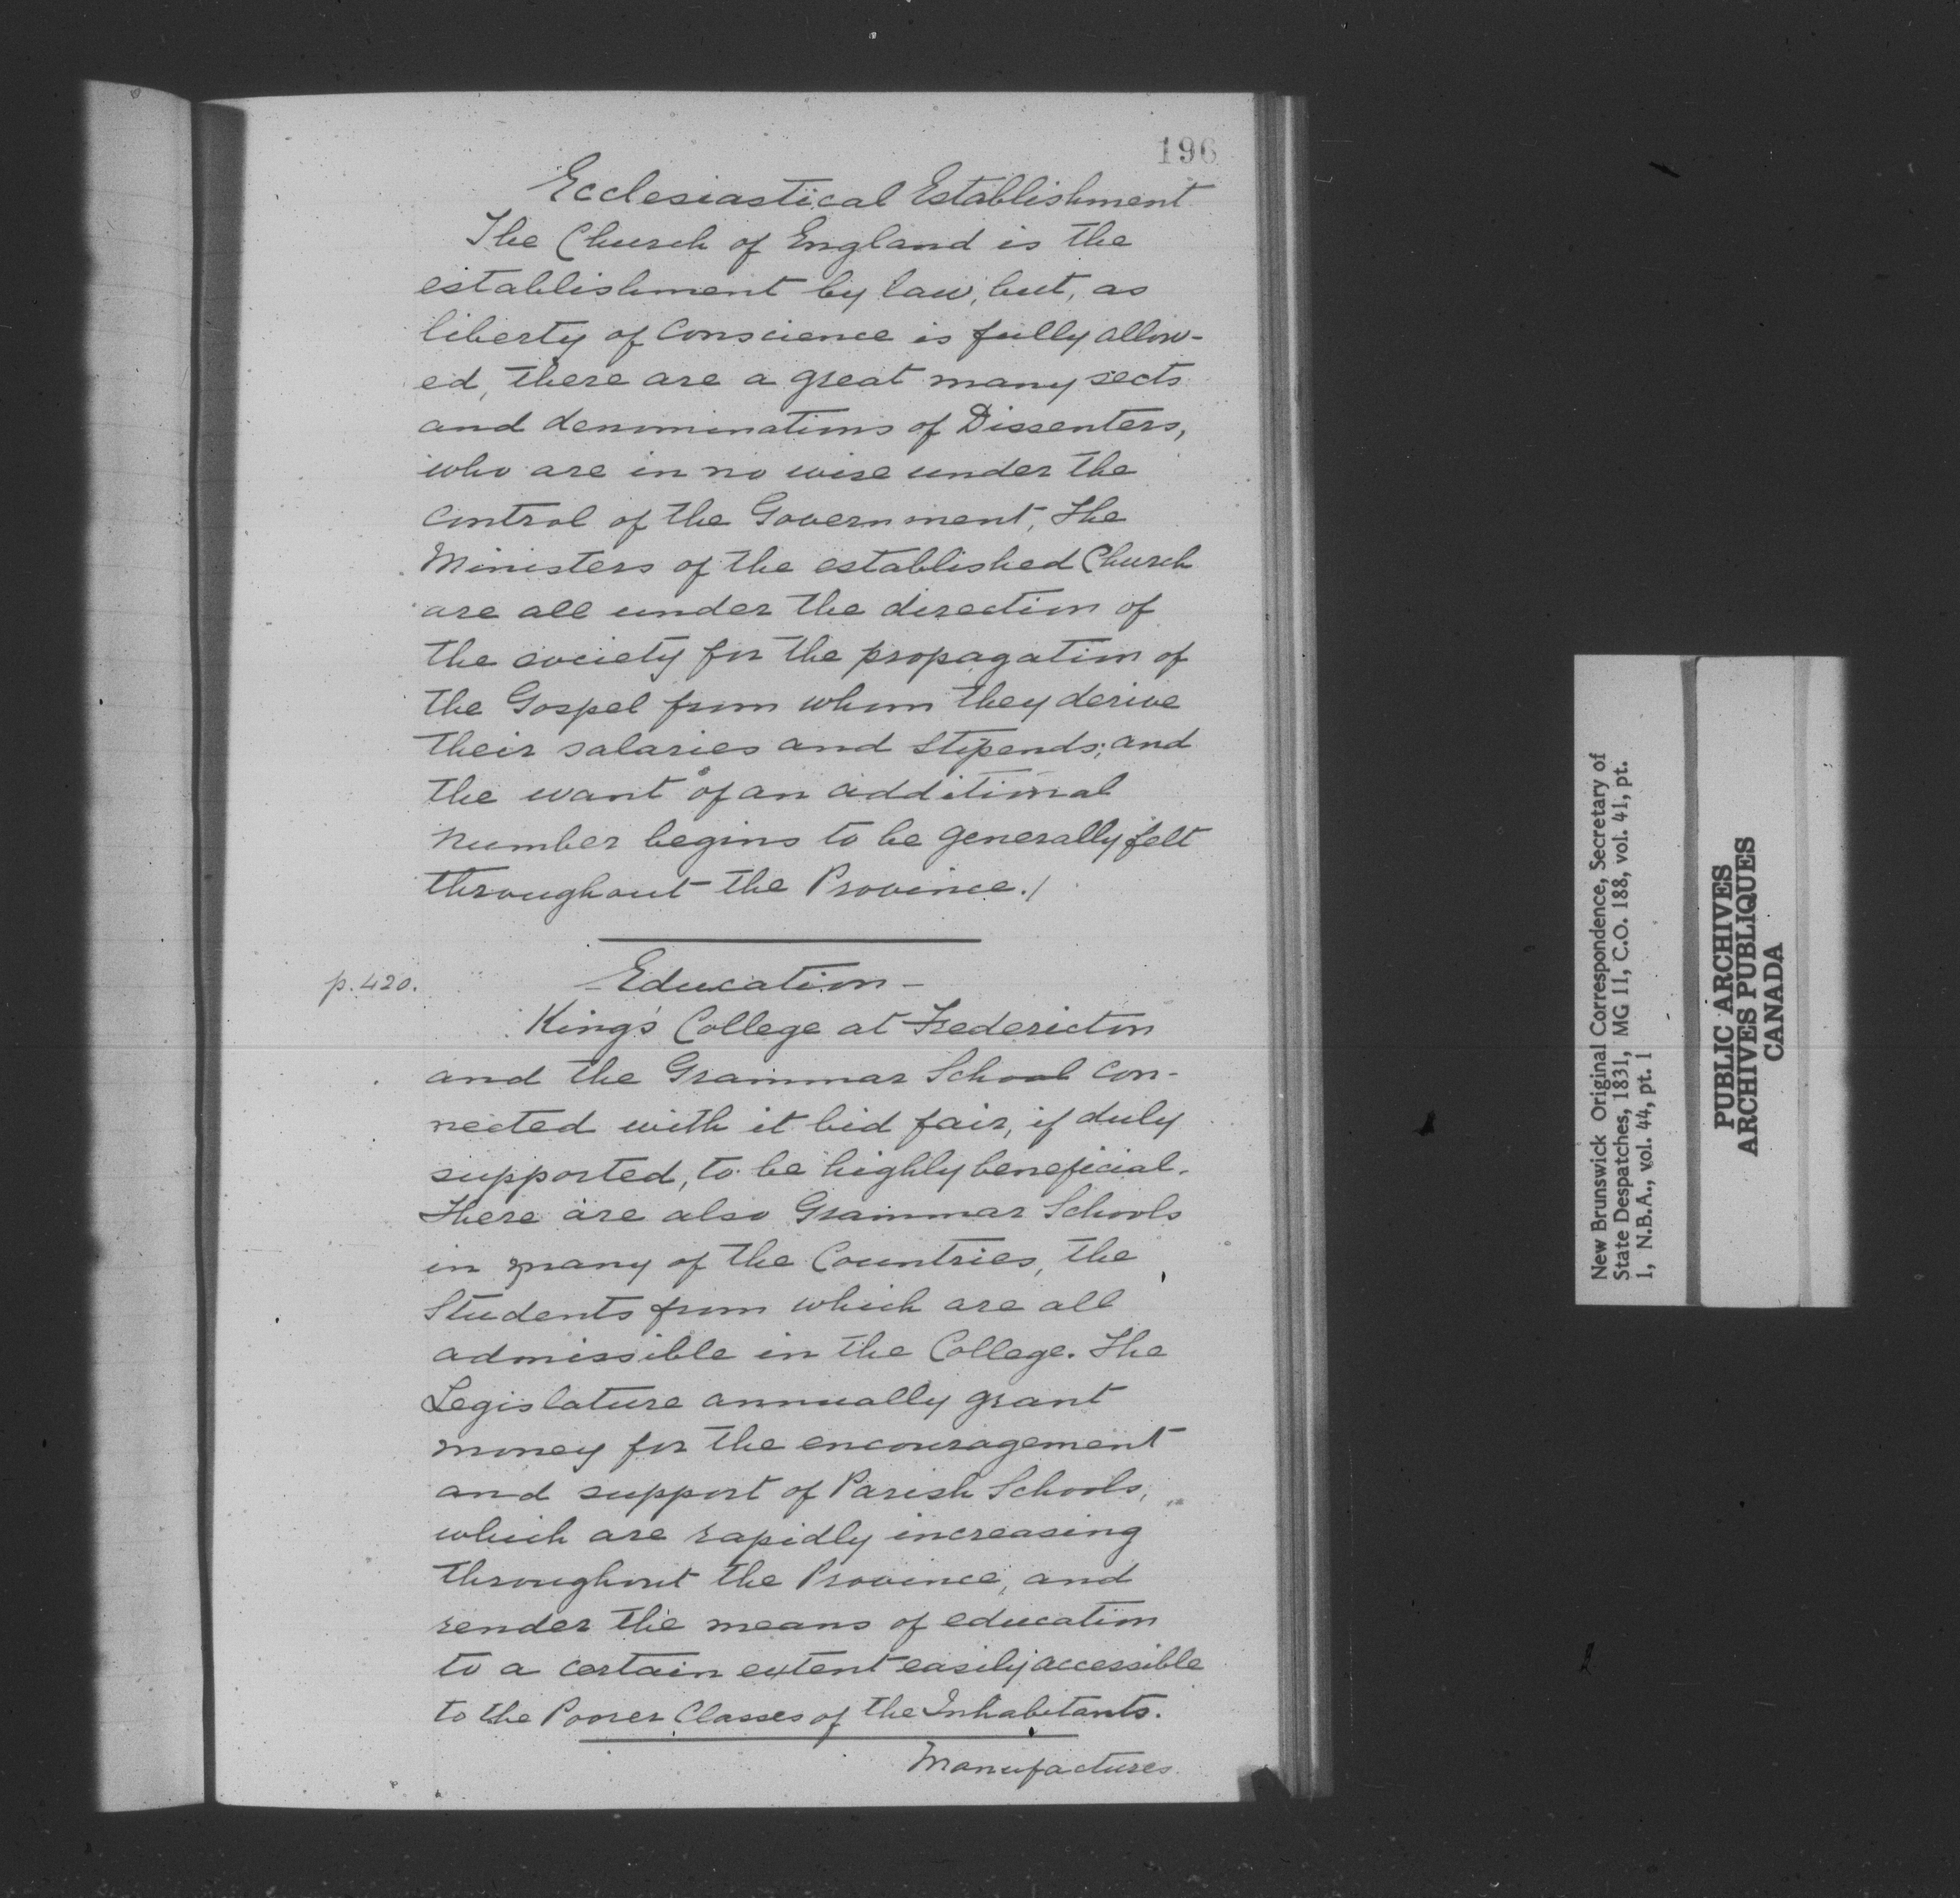 196
Ecclesiastical Establishment
The Church of England is the
establishment by law, but, as
liberty of Conscience is fully allow-
ed, there are a great many sects
and denominations of Dissenters,
who are in no wise under the
Control of the Government; The
Ministers of the established Church
are all under the direction of
the society for the propagation of
the Gospel from whom they derive
their salaries and stipends; and
the want of an additional
number begins to be generally felt
throughout the Province./
p. 420.
Education -
King's College at Fredericton
and the Grammar School Con-
nected with it bid fair, if duly
supported, to be highly beneficial.
There are also Grammar Schools
in many of the Countries, the
Students from which are all
admissible in the College. The
Legislature annually grant
money for the encouragement
and support of Parish Schools,
which are rapidly increasing
throughout the Province, and
render the means of education
to a certain extent easily accessible
to the Poorer Classes of the Inhabitants.
Manufactures
New Brunswick Original Correspondence, Secretary of
State Despatches, 1831, MG 11, C.O. 188, vol. 41, pt.
1, N.B.A., vol. 44, pt. 1
PUBLIC ARCHIVES
ARCHIVES PUBLIQUES
CANADA